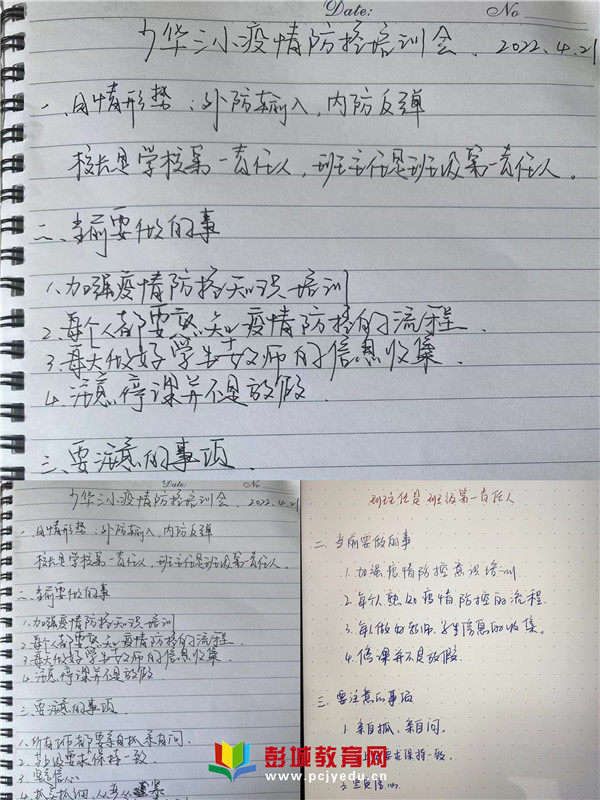 Date:
No
少华三小疫情防控培训会. 2022.4.21
一、国情形势、外防输入,内防反弹
校长是学校第一责任人,班主任是班级第一责任人。
二、当前要做的事
1、加强疫情防控知识培训
2、每个人都要熟知疫情防控的流程.
3、每天做好学生教师的信息收集.
4、注意,停课并不是放假.
三、要注意的事项.
Date:
No
少华三小疫情防控培训会. 2022.4.21
一、国情形势、外防输入,内防反弹
校长是学校第一责任人,班主任是班级第一责任人.
二、当前要做的事
1、加强疫情防控知识培训
2、每个人都要熟知疫情防控的流程.
3、每天做好学生教师的信息收集.
4、注意,停课并不是放假
三、要注意的事项.
1、所有工作都要亲自抓亲自问.
2、要求保持一致.
3、坚定信心
4、抓实抓细
班主任是班级第一责任人
二、当前要做的事
1、加强疫情防控意识培训
2、每个人熟知疫情防控的流程.
3、每人做好教师、学生信息的收集.
4、停课并不是放假.
三、要注意的事项
1、亲自抓、亲自问.
要求保持一致.
3、坚定信心
彭城教育网
www.pcjyedu.cn